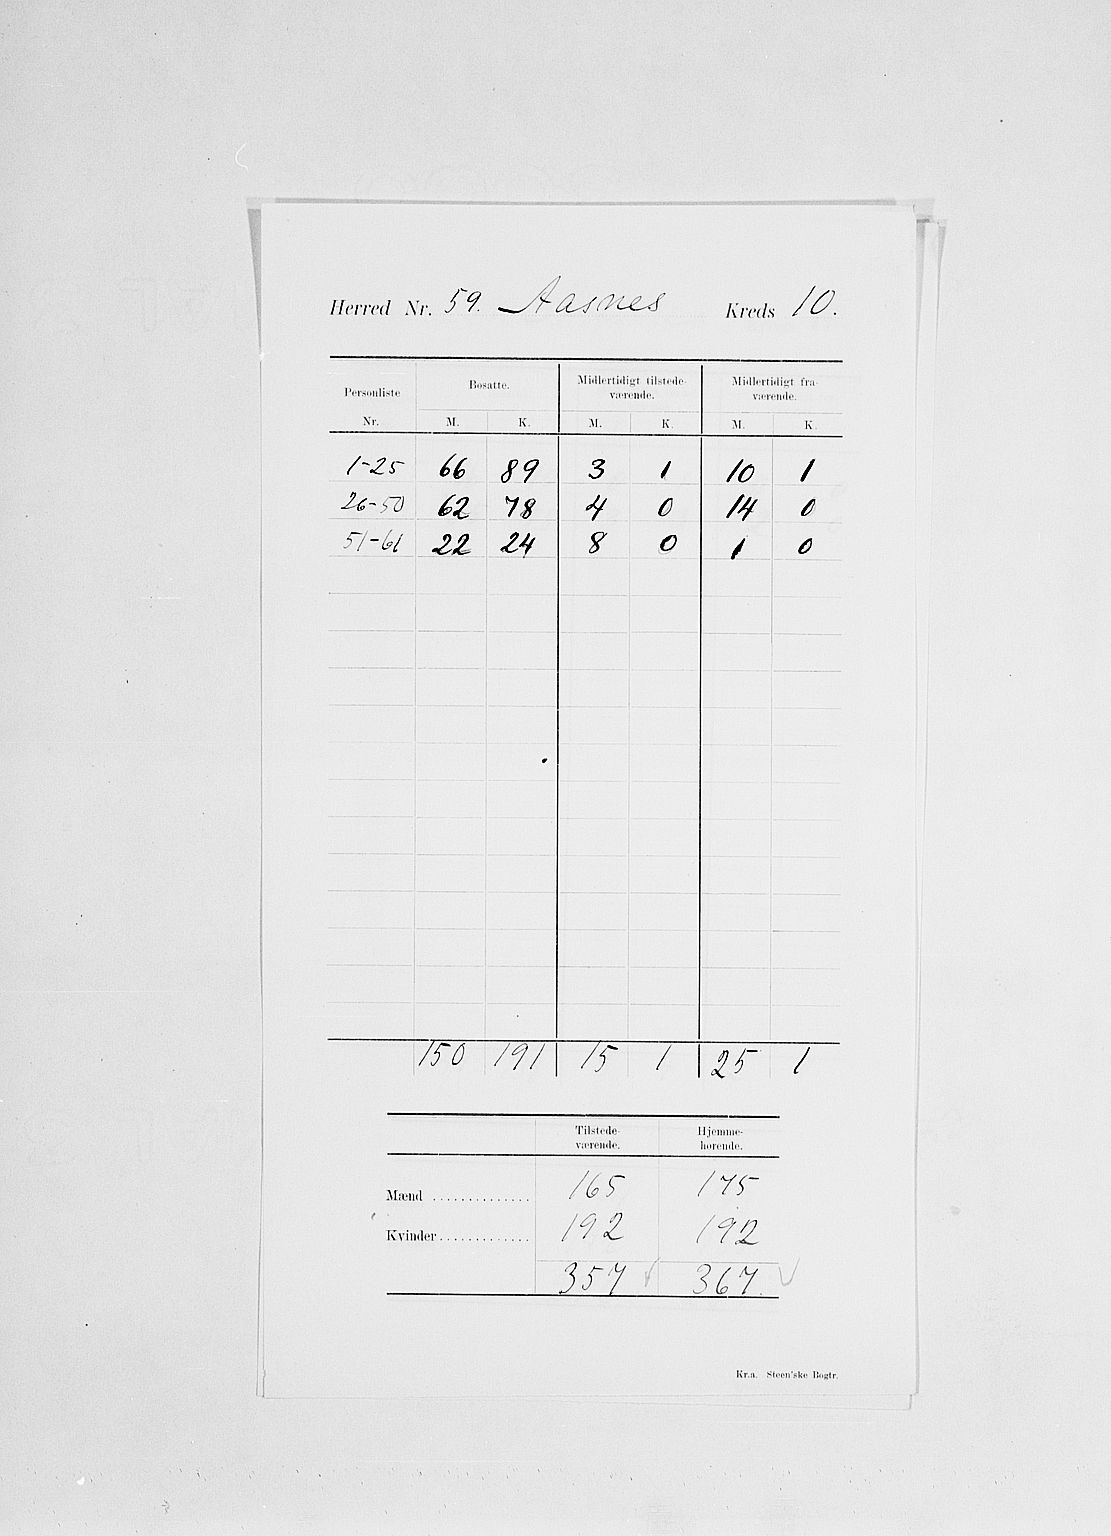 Herred Nr. 59. Aasnes Kreds 10.
Personliste Bosatte. Midlertidigt tilstede- Midlertidigt fra-
værende. værende.
Nr. M. K. M. K. M. K.
1-25 66 89 3 1 10 1
26-50 62 78 4 0 14 0
51-61 22 24 8 0 1 0
150 191 15 1 25 1
Tilstede- Hjemme-
værende. hørende.
Mænd .............. 165 175
Kvinder............. 192 192
357 367.
Kr.a. Steen'ske Bogtr.